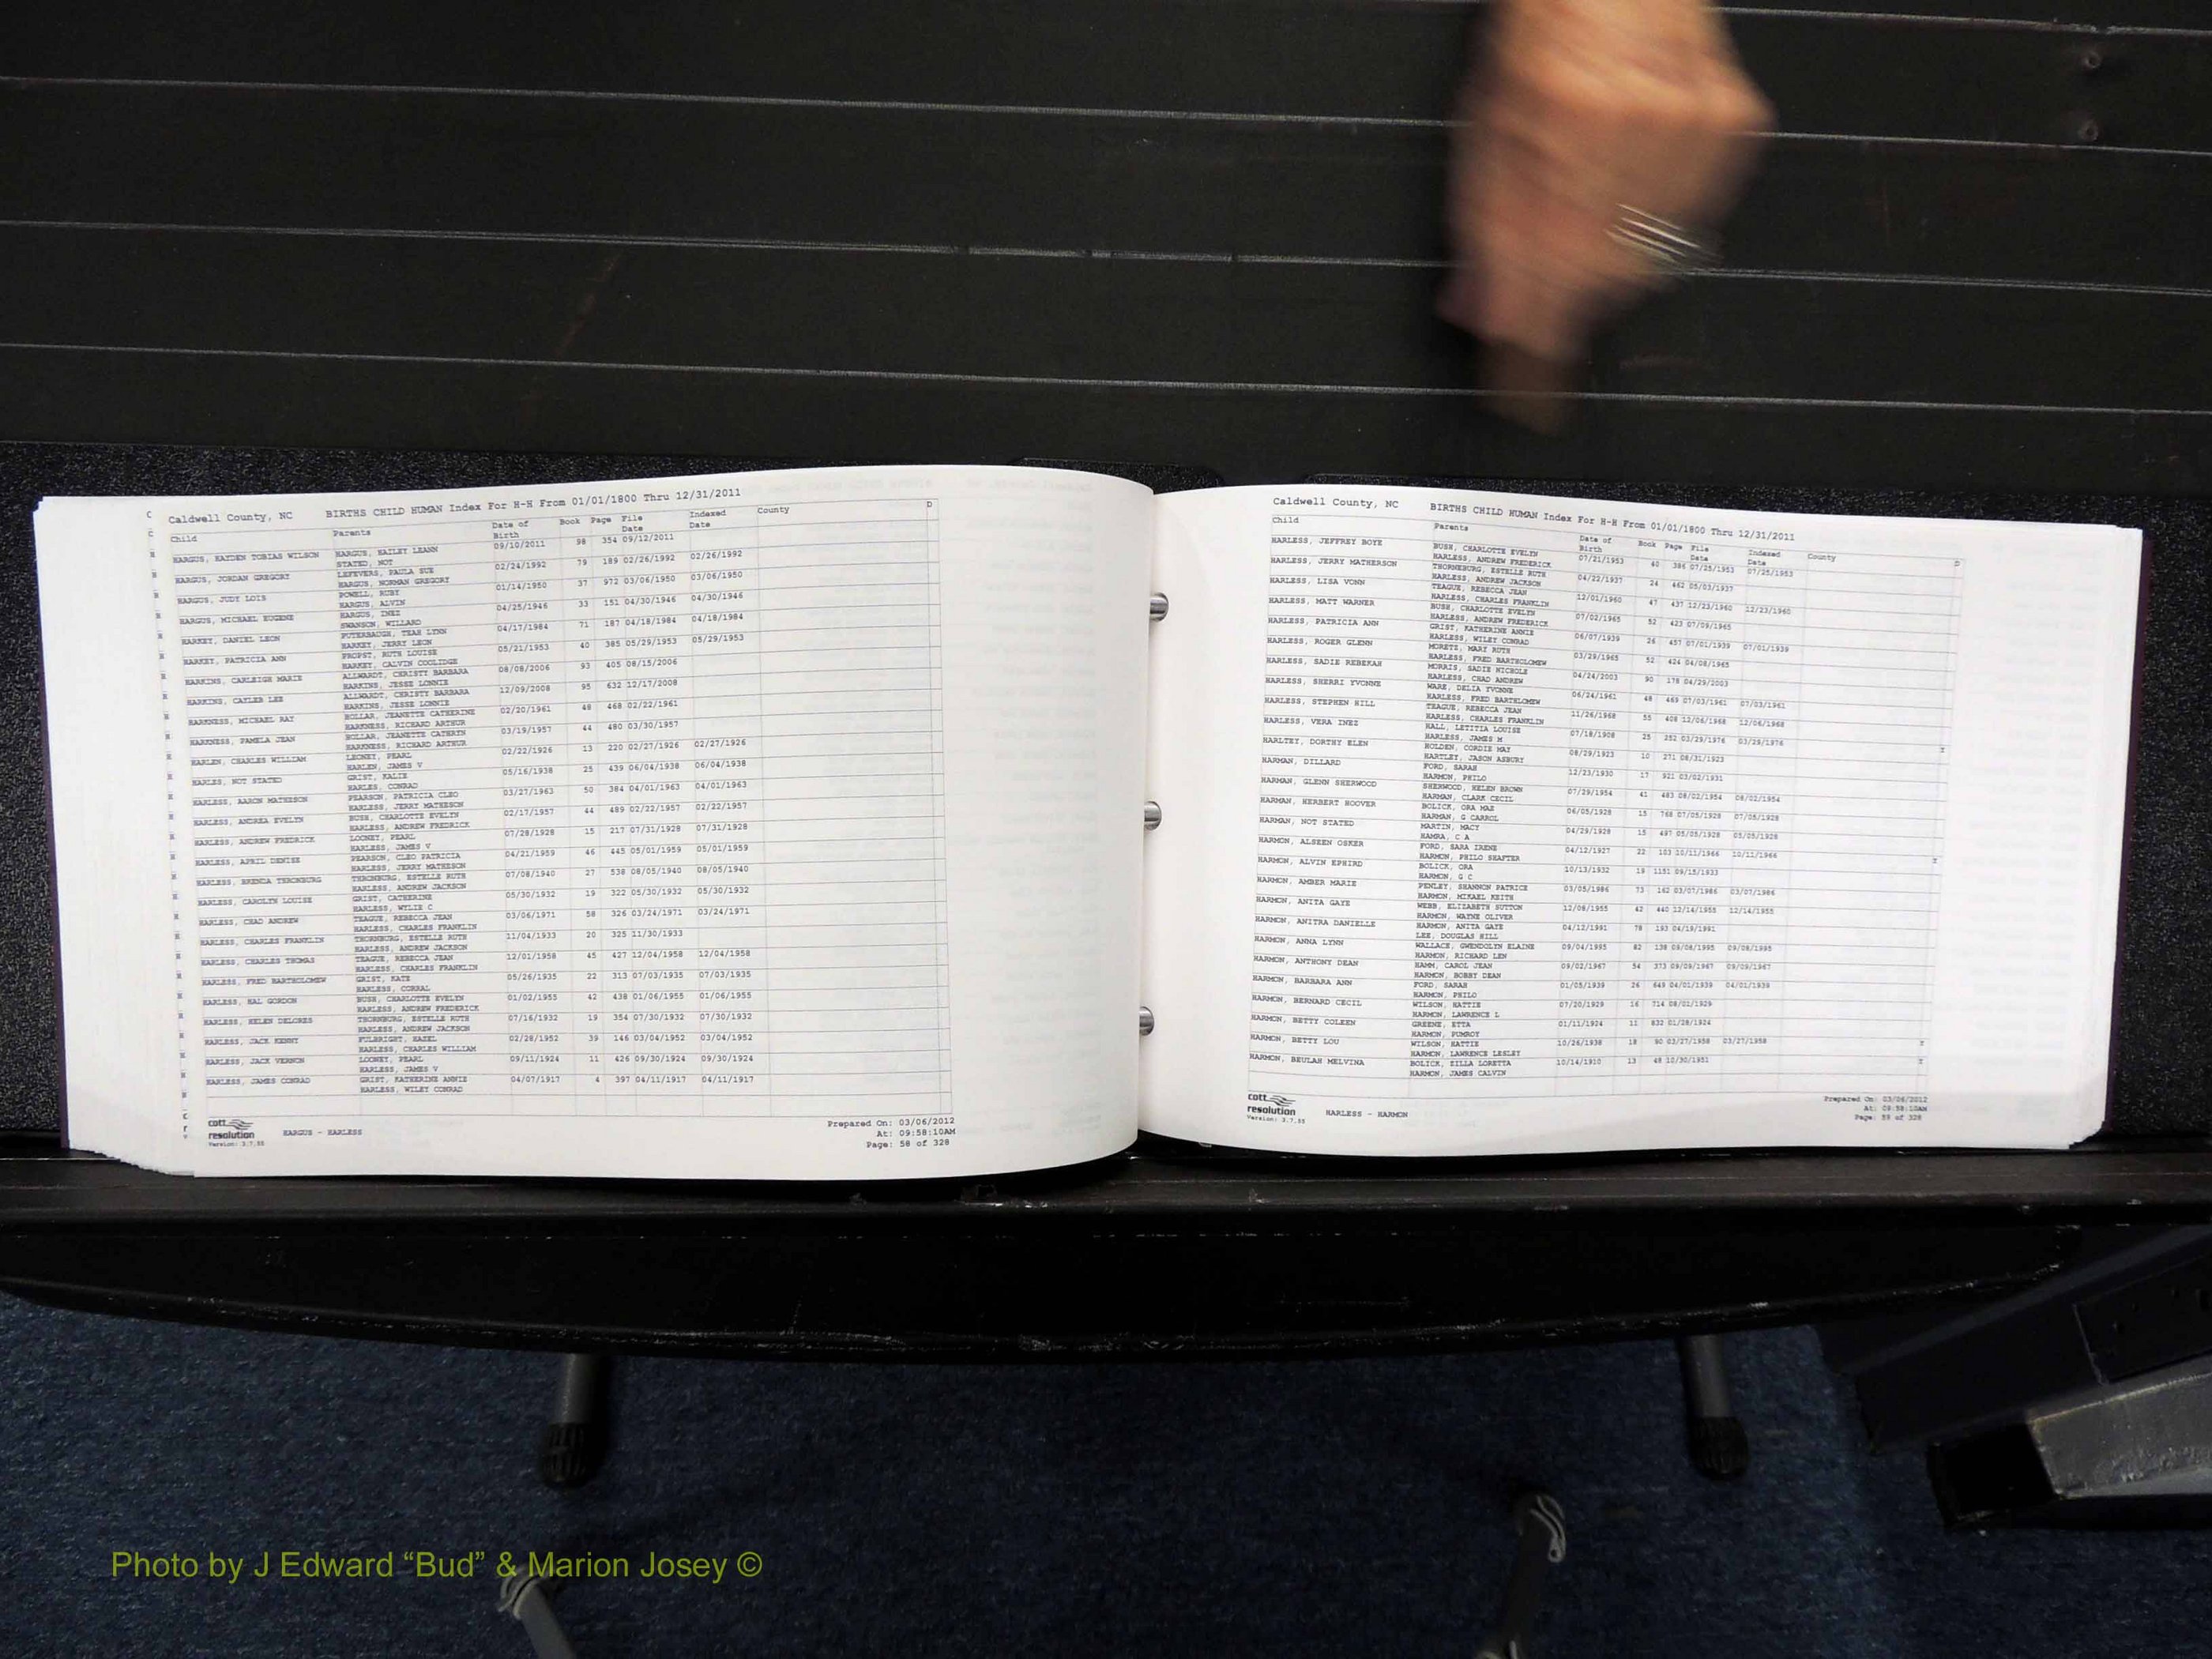 Caldwell County, NC BIRTHS CHILD HUMAN Index For H-H From 01/01/1800 Thru 12/31/2011
Child Parents Date of Birth Book Page File Date Indexed Date County D
HARGUS, HAYDEN TOBIAS WILSON HARGUS, HAILEY LEANN 09/10/2011 98 354 09/12/2011
STATED, NOT
HARGUS, JORDAN GREGORY LEFEVERS, PAULA SUE 02/24/1992 79 189 02/26/1992 02/26/1992
HARGUS, NORMAN GREGORY
HARGUS, JUDY LOIS POWELL, RUBY 01/14/1950 37 972 03/06/1950 03/06/1950
HARGUS, ALVIN
HARGUS, MICHAEL EUGENE HARGUS, INEZ 04/25/1946 33 151 04/30/1946 04/30/1946
SWANSON, WILLARD
HARKEY, DANIEL LEON PUTERBAUGH, TEAH LYNN 04/17/1984 71 187 04/18/1984 04/18/1984
HARKEY, JERRY LEON
HARKEY, PATRICIA ANN PROPST, RUTH LOUISE 05/21/1953 40 385 05/29/1953 05/29/1953
HARKEY, CALVIN COOLIDGE
HARKINS, CARLEIGH MARIE ALLWARDT, CHRISTY BARBARA 08/08/2006 93 405 08/15/2006
HARKINS, JESSE LONNIE
HARKINS, CAYLEB LEE ALLWARDT, CHRISTY BARBARA 12/09/2008 95 632 12/17/2008
HARKINS, JESSE LONNIE
HARKNESS, MICHAEL RAY BOLLAR, JEANETTE CATHERINE 02/20/1961 48 468 02/22/1961
HARKNESS, RICHARD ARTHUR
HARKNESS, PAMELA JEAN BOLLAR, JEANETTE CATHRYN 03/19/1957 44 480 03/30/1957
HARKNESS, RICHARD ARTHUR
HARLEN, CHARLES WILLIAM LEONEY, PEARL 02/22/1926 13 220 02/27/1926 02/27/1926
HARLEN, JAMES V
HARLES, NOT STATED GRIST, KALIE 05/16/1938 25 439 06/04/1938 06/04/1938
HARLES, CONRAD
HARLESS, AARON MATHESON PEARSON, PATRICIA CLEO 03/27/1963 50 384 04/01/1963 04/01/1963
HARLESS, JERRY MATHESON
HARLESS, ANDREA EVELYN BUSH, CHARLOTTE EVELYN 02/17/1957 44 489 02/22/1957 02/22/1957
HARLESS, ANDREW FREDRICK
HARLESS, ANDREW FREDRICK LOONEY, PEARL 07/28/1928 15 217 07/31/1928 07/31/1928
HARLESS, JAMES V
HARLESS, APRIL DENISE PEARSON, CLEO PATRICIA 04/21/1959 46 445 05/01/1959 05/01/1959
HARLESS, JERRY MATHESON
HARLESS, BRENDA THRONBURG THRONBURG, ESTELLE RUTH 07/08/1940 27 538 08/05/1940 08/05/1940
HARLESS, ANDREW JACKSON
HARLESS, CAROLYN LOUISE GRIST, CATHERINE 05/30/1932 19 322 05/30/1932 05/30/1932
HARLESS, WYLIE C
HARLESS, CHAD ANDREW TEAGUE, REBECCA JEAN 03/06/1971 58 326 03/24/1971 03/24/1971
HARLESS, CHARLES FRANKLIN
HARLESS, CHARLES FRANKLIN THORNBURG, ESTELLE RUTH 11/04/1933 20 325 11/30/1933
HARLESS, ANDREW JACKSON
HARLESS, CHARLES THOMAS TEAGUE, REBECCA JEAN 12/01/1958 45 427 12/04/1958 12/04/1958
HARLESS, CHARLES FRANKLIN
HARLESS, FRED BARTHOLOMEW GRIST, KATE 05/26/1935 22 313 07/03/1935 07/03/1935
HARLESS, CORRAL
HARLESS, HAL GORDON BUSH, CHARLOTTE EVELYN 01/02/1955 42 438 01/06/1955 01/06/1955
HARLESS, ANDREW FREDERICK
HARLESS, HELEN DELORES THORNBURG, ESTELLE ROTH 07/16/1932 19 354 07/30/1932 07/30/1932
HARLESS, ANDREW JACKSON
HARLESS, JACK KENNY FULBRIGHT, HAZEL 02/28/1952 39 146 03/04/1952 03/04/1952
HARLESS, CHARLES WILLIAM
HARLESS, JACK VERNON LOONEY, PEARL 09/11/1924 11 426 09/30/1924 09/30/1924
HARLESS, JAMES V
HARLESS, JAMES CONRAD GRIST, KATHERINE ANNIE 04/07/1917 4 397 04/11/1917 04/11/1917
HARLESS, WILEY CONRAD
cott
resolution
Version: 3.7.55
HARGUS - HARLESS
Prepared On: 03/06/2012
At: 09:58:10AM
Page: 58 of 328
Caldwell County, NC BIRTHS CHILD HUMAN Index For H-H From 01/01/1800 Thru 12/31/2011
Child Parents Date of Birth Book Page File Date Indexed Date County D
HARLESS, JEFFREY BOYE BUSH, CHARLOTTE EVELYN 07/21/1953 40 386 07/25/1953 07/25/1953
HARLESS, ANDREW FREDERICK
HARLESS, JERRY MATHERSON THORNEBURG, ESTELLE RUTH 04/22/1937 24 462 05/03/1937
HARLESS, ANDREW JACKSON
HARLESS, LISA VONN TEAGUE, REBECCA JEAN 12/01/1960 47 437 12/23/1960 12/23/1960
HARLESS, CHARLES FRANKLIN
HARLESS, MATT WARNER BUSH, CHARLOTTE EVELYN 07/02/1965 52 423 07/09/1965
HARLESS, ANDREW FREDERICK
HARLESS, PATRICIA ANN GRIST, KATHERINE ANNIE 06/07/1939 26 457 07/01/1939 07/01/1939
HARLESS, WILEY CONRAD
HARLESS, ROGER GLENN MORETZ, MARY RUTH 03/29/1965 52 424 04/08/1965
HARLESS, FRED BARTHOLOMEW
HARLESS, SADIE REBEKAH MORRIS, SADIE NICHOLE 04/24/2003 90 178 04/29/2003
HARLESS, CHAD ANDREW
HARLESS, SHERRI YVONNE WARE, DELIA YVONNE 06/24/1961 48 469 07/03/1961 07/03/1961
HARLESS, FRED BARTHLOMEW
HARLESS, STEPHEN HILL TEAGUE, REBECCA JEAN 11/26/1968 55 408 12/06/1968 12/06/1968
HARLESS, CHARLES FRANKLIN
HARLESS, VERA INEZ HALL, LETITIA LOUISE 07/18/1908 25 252 03/29/1976 03/29/1976
HARLESS, JAMES M
HARLTEY, DORTHY ELEN HOLDEN, CORDIE MAY 08/29/1923 10 271 08/31/1923
HARTLEY, JASON ASBURY
HARMAN, DILLARD FORD, SARAH 12/23/1930 17 921 03/02/1931
HARMON, PHILO
HARMAN, GLENN SHERWOOD SHERWOOD, HELEN BROWN 07/29/1954 41 483 08/02/1954 08/02/1954
HARMAN, CLARK CECIL
HARMAN, HERBERT HOOVER BOLICK, ORA MAE 06/05/1928 15 768 07/05/1928 07/05/1928
HARMAN, G CARROL
HARMAN, NOT STATED MARTIN, MACY 04/29/1928 15 497 05/05/1928 05/05/1928
HAMRA, C A
HARMON, ALSEEN OSKER FORD, SARA IRENE 04/12/1927 22 103 10/11/1966 10/11/1966
HARMON, PHILO SHAFTER
HARMON, ALVIN EPHIRD BOLICK, ORA 10/13/1932 19 1151 09/15/1933
HARMON, G C
HARMON, AMBER MARIE PENLEY, SHANNON PATRICE 03/05/1986 73 162 03/07/1986 03/07/1986
HARMON, MIKAEL KEITH
HARMON, ANITA GAYE WEBB, ELIZABETH SUTTON 12/08/1955 42 440 12/14/1955 12/14/1955
HARMON, WAYNE OLIVER
HARMON, ANITRA DANIELLE HARMON, ANITA GAYE 04/12/1991 78 193 04/19/1991
LEE, DOUGLAS HILL
HARMON, ANNA LYNN WALLACE, GWENDOLYN ELAINE 09/04/1995 82 138 09/08/1995 09/08/1995
HARMON, RICHARD LEN
HARMON, ANTHONY DEAN HAMM, CAROL JEAN 09/02/1967 54 373 09/09/1967 09/09/1967
HARMON, BOBBY DEAN
HARMON, BARBARA ANN FORD, SARAH 01/05/1939 26 649 04/01/1939 04/01/1939
HARMON, PHILO
HARMON, BERNARD CECIL WILSON, HATTIE 07/20/1929 16 714 08/01/1929
HARMON, LAWRENCE L
HARMON, BETTY COLEEN GREENE, ETTA 01/11/1924 11 832 01/28/1924
HARMON, PUMROY
HARMON, BETTY LOU WILSON, HATTIE 10/26/1938 18 90 03/27/1958 03/27/1958
HARMON, LAWRENCE LESLEY
HARMON, BEULAH MELVINA BOLICK, ZILLA LORETTA 10/14/1910 13 48 10/30/1951
HARMON, JAMES CALVIN
cott
resolution
Version: 3.7.55
HARLESS - HARMON
Prepared On: 03/06/2012
At: 09:58:10AM
Page: 59 of 328
Photo by J Edward “Bud” & Marion Josey ©